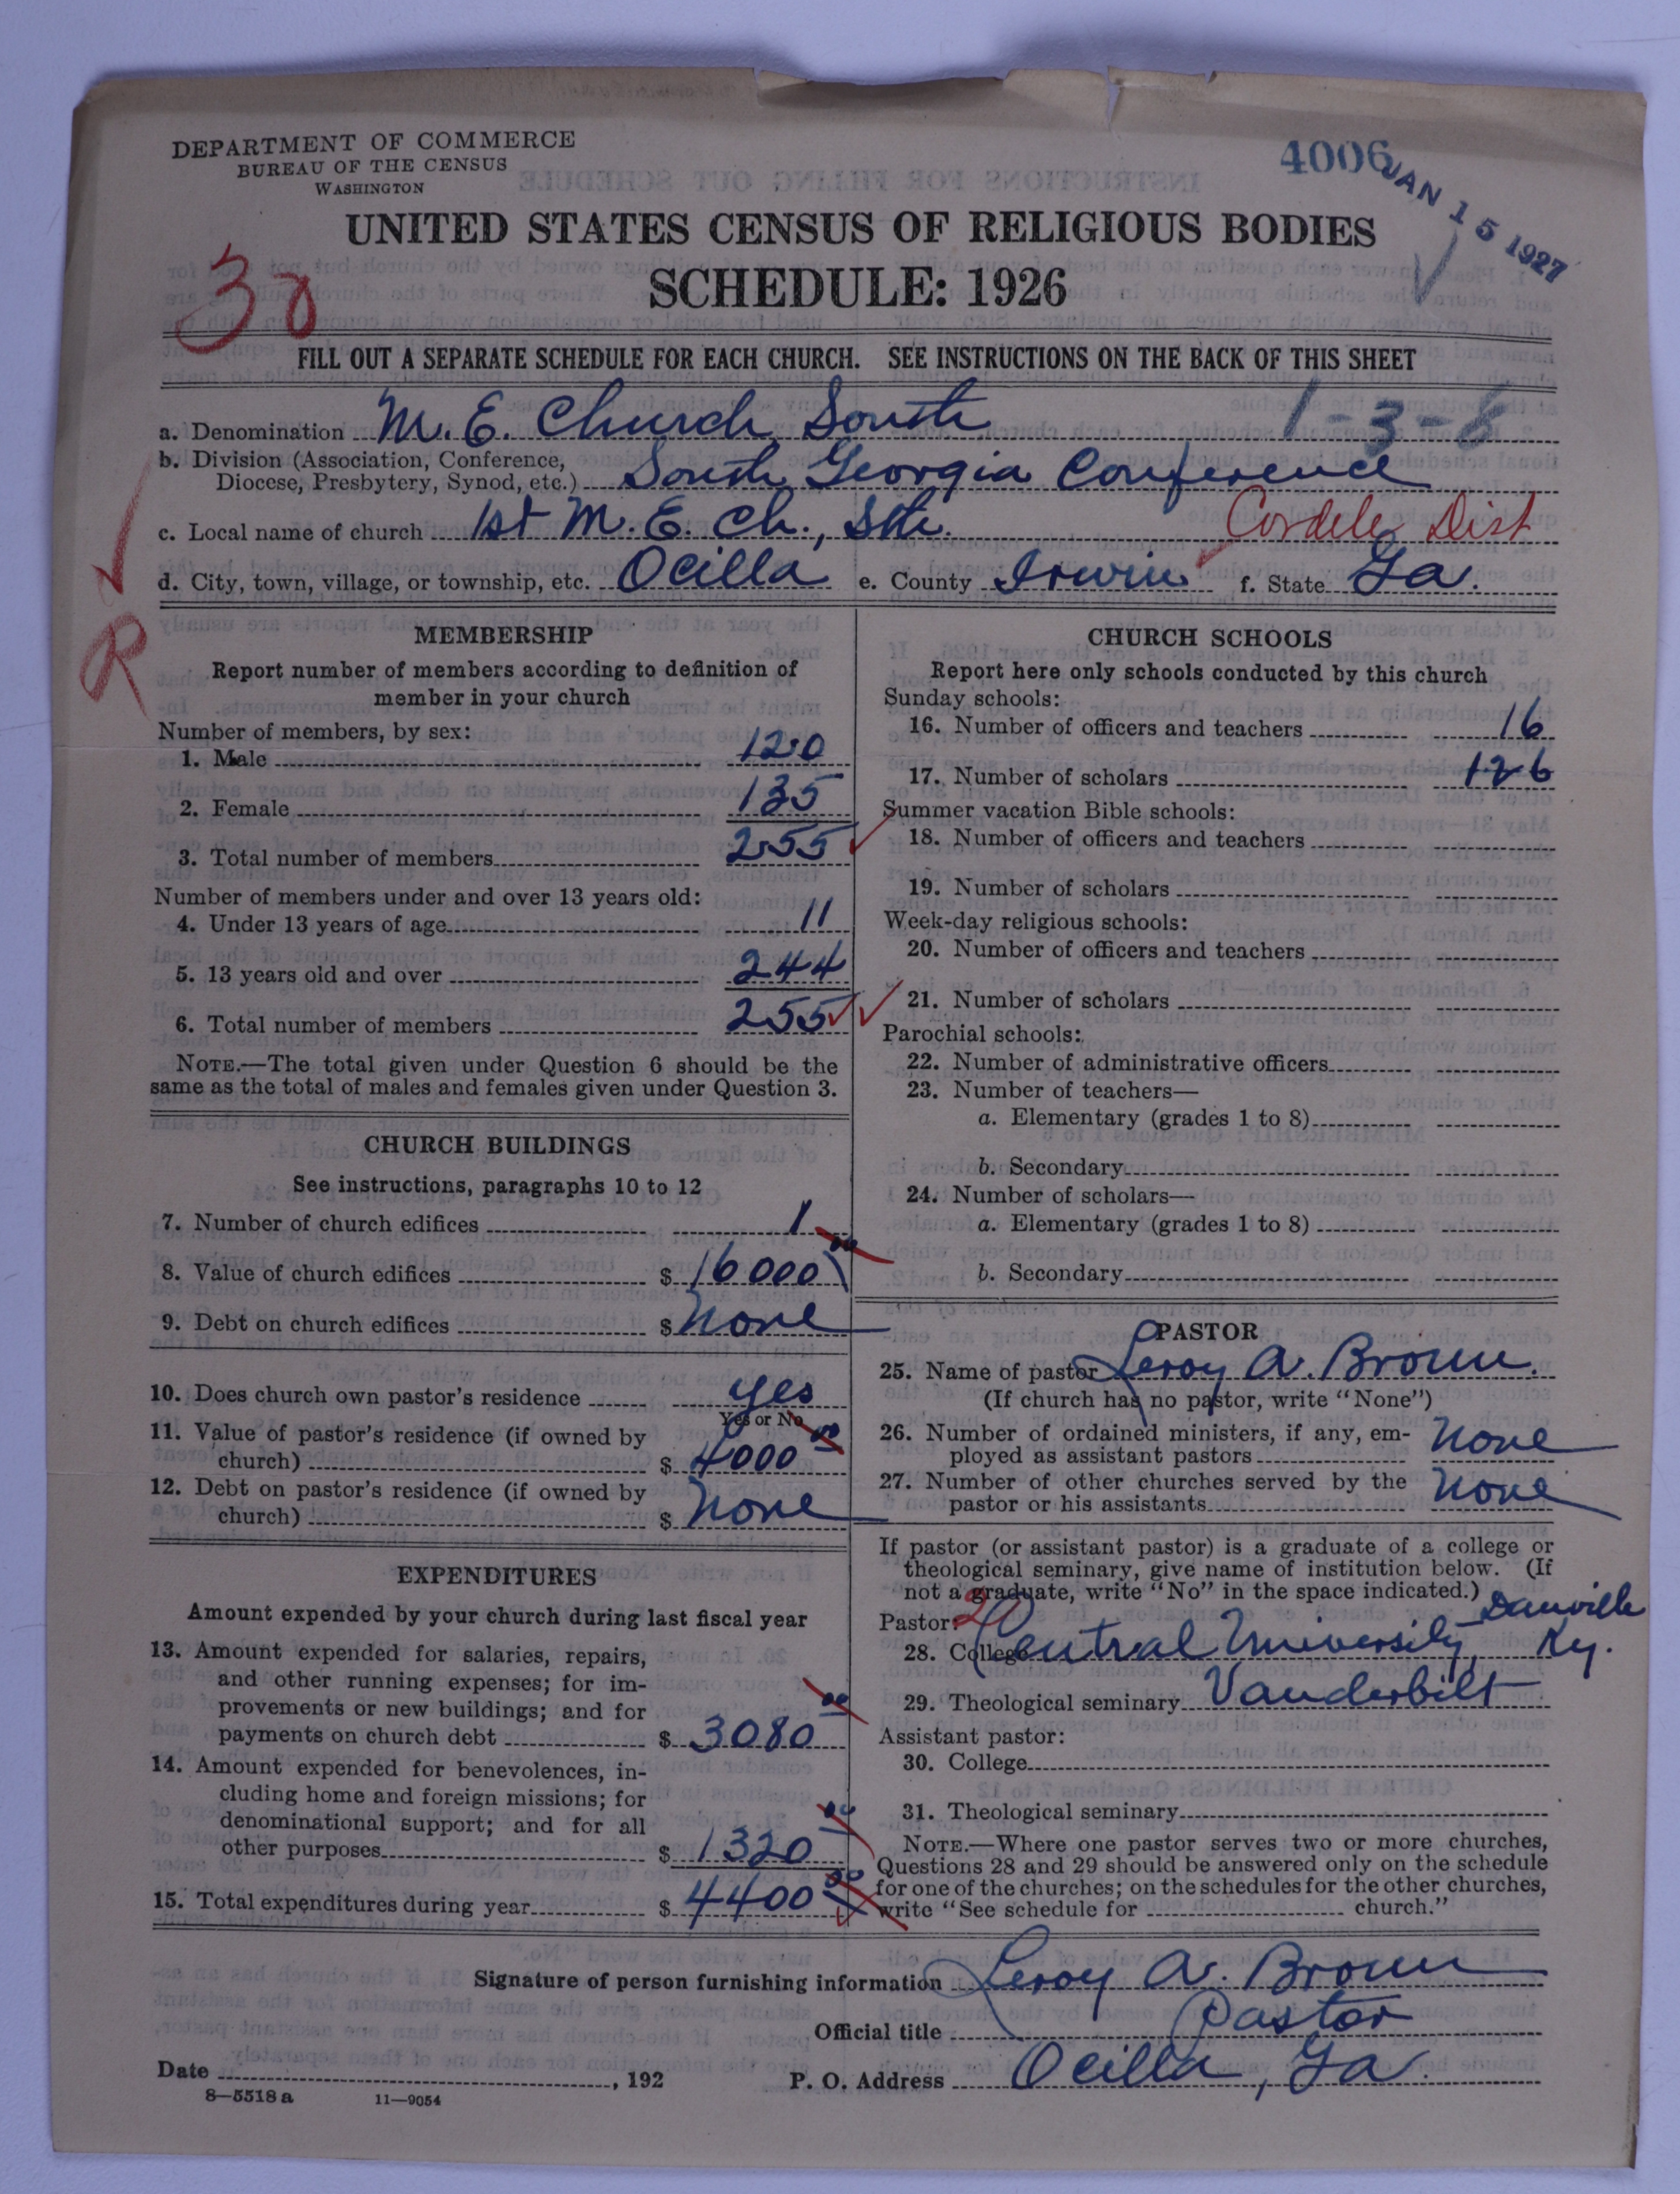 DEPARTMENT OF COMMERCE
BUREAU OF THE CENSUS
WASHINGTON
4006
JAN 15 1927
UNITED STATES CENSUS OF RELIGIOUS BODIES
SCHEDULE: 1926
30
FILL OUT A SEPARATE SCHEDULE FOR EACH CHURCH. SEE INSTRUCTIONS ON THE BACK OF THIS SHEET
1-3-6
a. Denomination M. E. Church, South
b. Division (Association, Conference,
Diocese, Presbytery, Synod, etc.) South Georgia Conference
c. Local name of church 1st M. E. Ch., Sth. Cordele Dist
d. City, town, village, or township, etc. Ocilla e. County Irwin f. State Ga.
R
MEMBERSHIP
Report number of members according to definition of
member in your church
Number of members, by sex:
1. Male 120
2. Female 135
3. Total number of members 255
Number of members under and over 13 years old:
4. Under 13 years of age 11
5. 13 years old and over 244
6. Total number of members 255
NOTE.—The total given under Question 6 should be the
same as the total of males and females given under Question 3.
CHURCH BUILDINGS
See instructions, paragraphs 10 to 12
7. Number of church edifices 1
8. Value of church edifices $ 16000 00
9. Debt on church edifices $ None
10. Does church own pastor's residence yes
Yes or No
11. Value of pastor's residence (if owned by
church) $ 4000 00
12. Debt on pastor's residence (if owned by
church) $ None
EXPENDITURES
Amount expended by your church during last fiscal year
13. Amount expended for salaries, repairs,
and other running expenses; for im-
provements or new buildings; and for
payments on church debt $ 3080 00
14. Amount expended for benevolences, in-
cluding home and foreign missions; for
denominational support; and for all
other purposes $ 1320 00
15. Total expenditures during year $ 4400 00
CHURCH SCHOOLS
Report here only schools conducted by this church
Sunday schools:
16. Number of officers and teachers 16
17. Number of scholars 126
Summer vacation Bible schools:
18. Number of officers and teachers
19. Number of scholars
Week-day religious schools:
20. Number of officers and teachers
21. Number of scholars
Parochial schools:
22. Number of administrative officers
23. Number of teachers—
a. Elementary (grades 1 to 8)
b. Secondary
24. Number of scholars—
a. Elementary (grades 1 to 8)
b. Secondary
PASTOR
25. Name of pastor Leroy A. Brown.
(If church has no pastor, write "None")
26. Number of ordained ministers, if any, em-
ployed as assistant pastors None
27. Number of other churches served by the
pastor or his assistants None
If pastor (or assistant pastor) is a graduate of a college or
theological seminary, give name of institution below. (If
not a graduate, write "No" in the space indicated.)
Pastor: 20 Danville
28. College Central University, Ky.
29. Theological seminary Vanderbilt
Assistant pastor:
30. College
31. Theological seminary
NOTE.—Where one pastor serves two or more churches,
Questions 28 and 29 should be answered only on the schedule
for one of the churches; on the schedules for the other churches,
write "See schedule for church."
Signature of person furnishing information Leroy A. Brown
Official title Pastor
Date , 192 P. O. Address Ocilla, Ga.
8—5518 a 11—9054